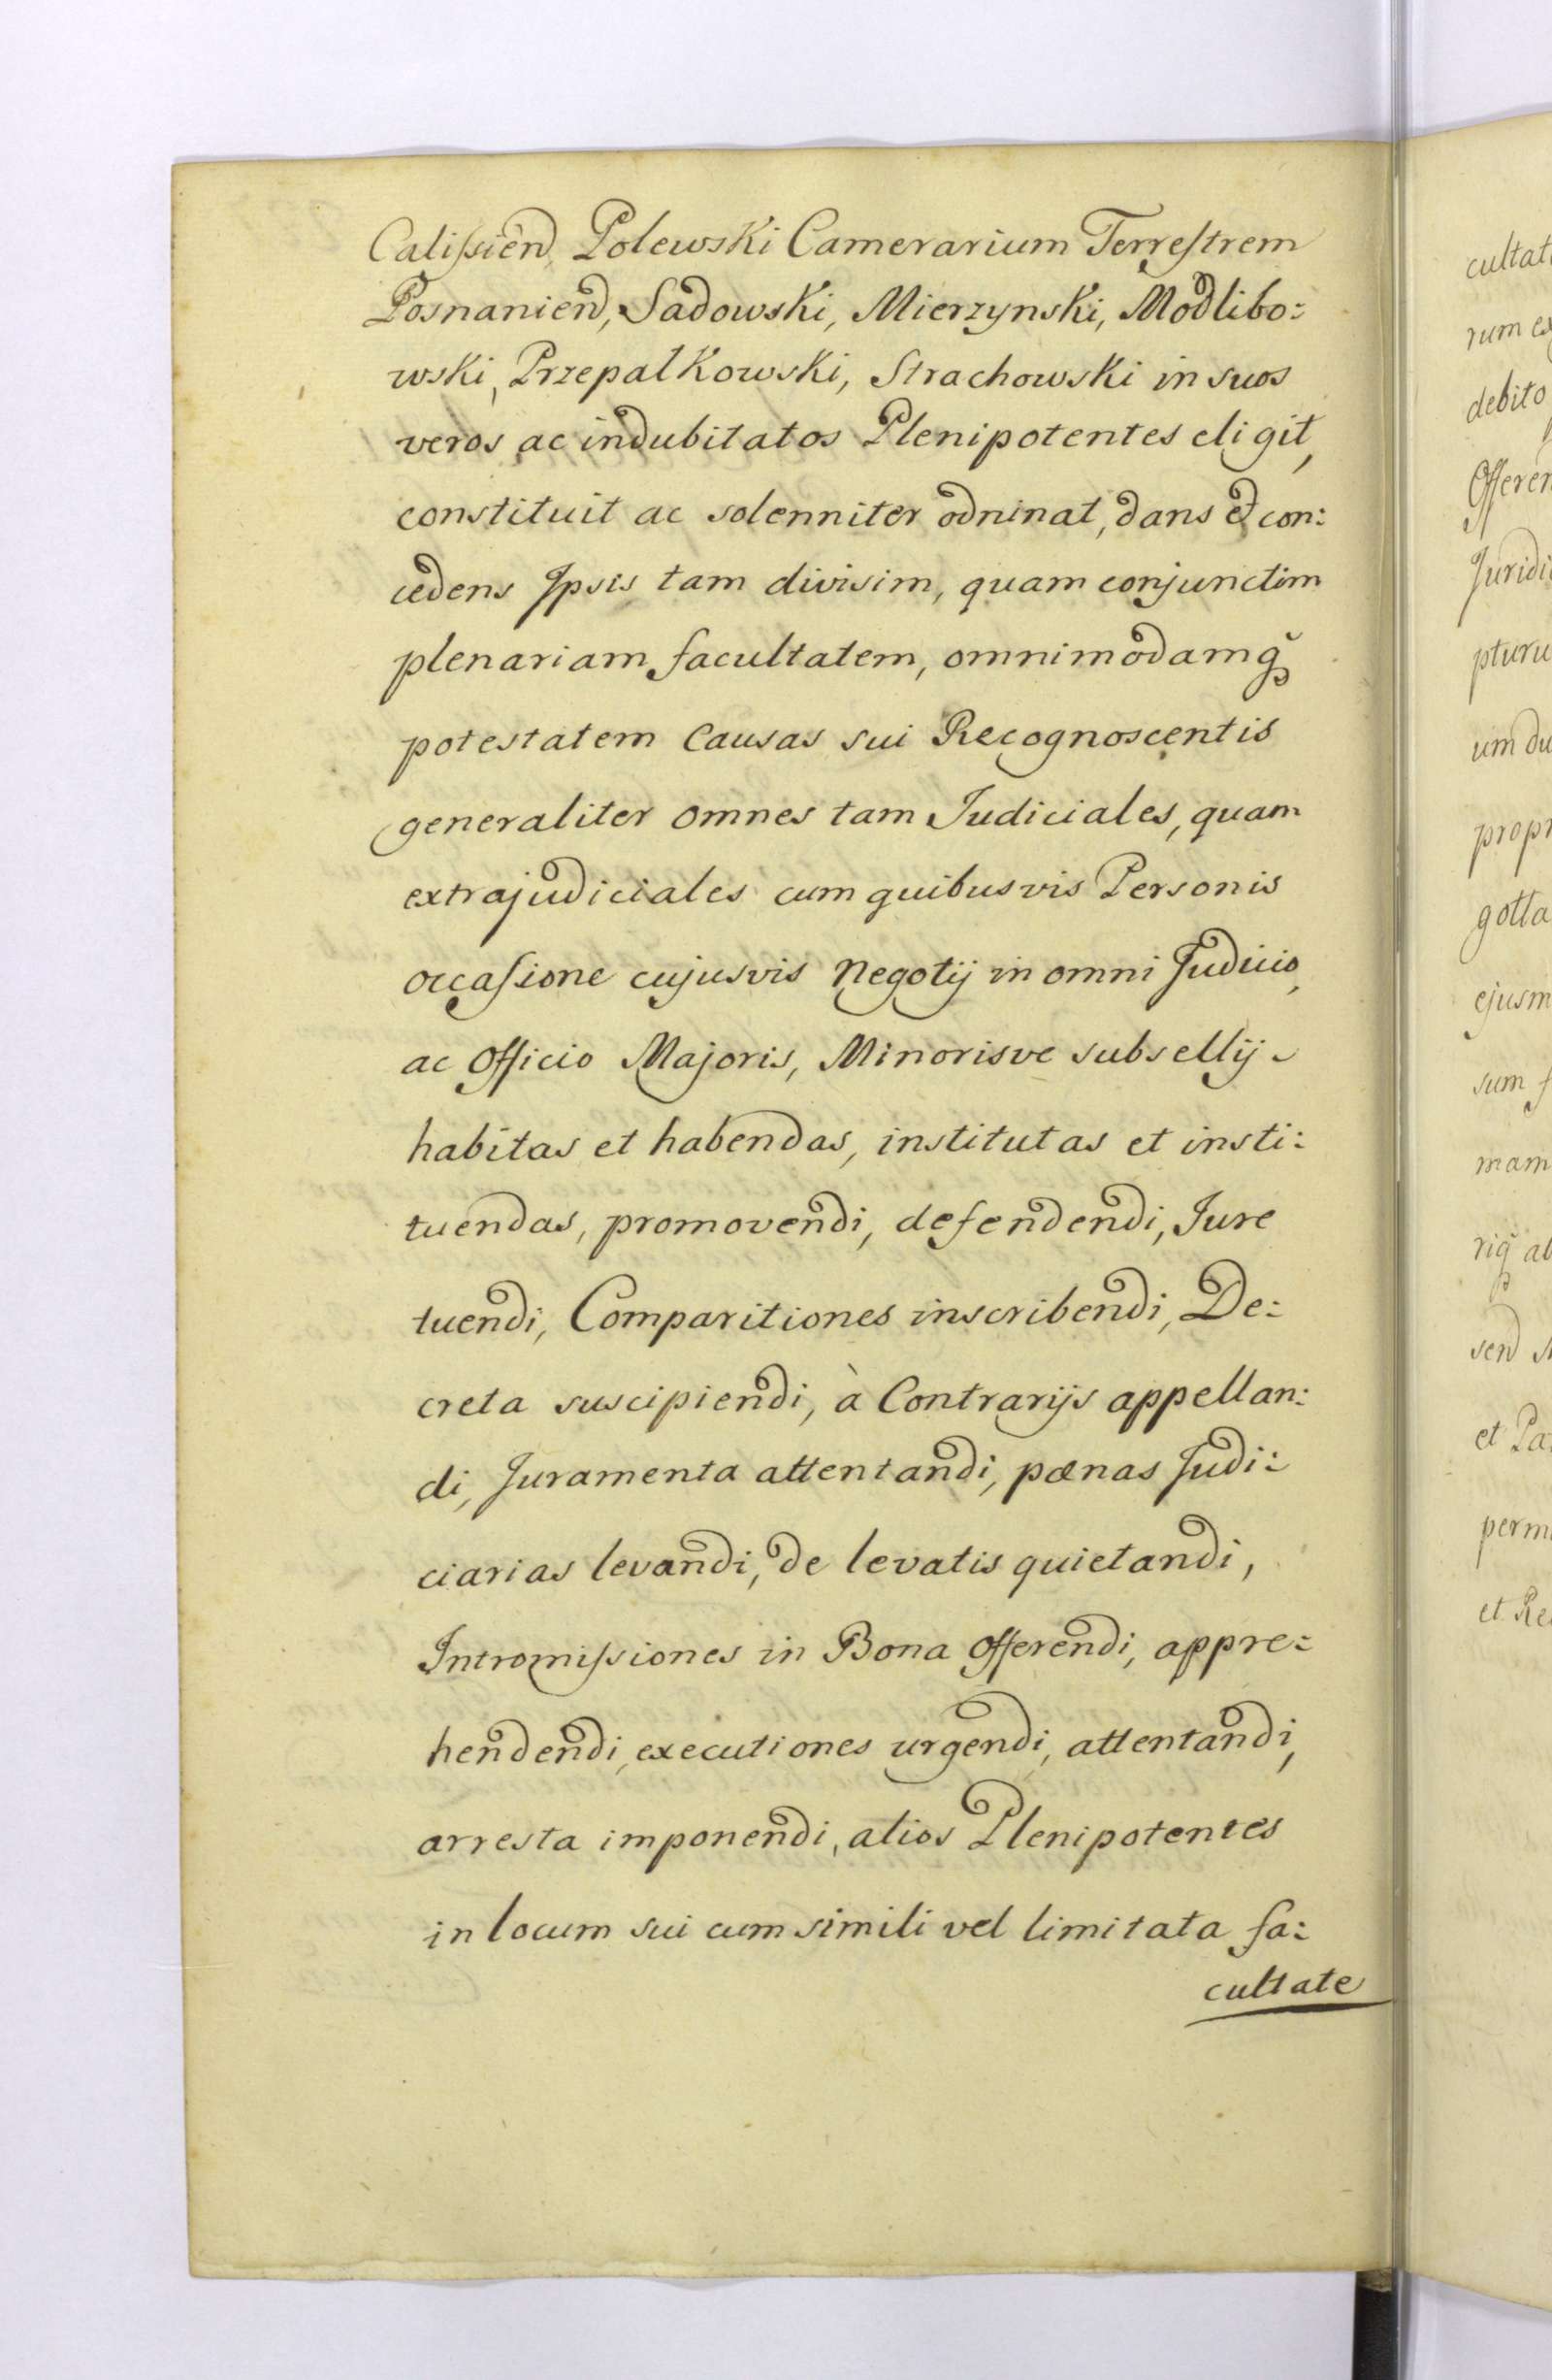 Calissien Polewski Camerarium Terrestrem
Posnanien, Sadowski, Mierzynski, Modlibo:
wski, Przepalkowski, Strachowski in suos
veros ac indubitatos Plenipotentes eligit,
constituit ac solenniter odninat, dans et con:
cedens Ipsis tam divisim, quam conjunctim
plenariam facultatem, omnimodamq̃
potestatem Causas sui Recognoscentis
generaliter omnes tam Judiciales, quam
extrajudiciales cum quibusvis Personis
occasione cujusvis Negotij in omni Judicio,
ac Officio Majoris, Minorisve subsellij
habitas et habendas, institutas et insti:
tuendas, promovendi, defendendi, Jure
tuendi, Comparitiones inscribendi, De:
creta suscipiendi, à Contrarijs appellan:
di, Juramenta attentandi, pænas Judi:
ciarias levandi, de levatis quietandi,
Intromissiones in Bona Offerendi, appre:
hendendi, executiones urgendi, attentandi,
arresta imponendi, alios Plenipotentes
in locum sui cum simili vel limitata fa:
cultate
cultat
rum ex
debito
Offeren
Juridi
pturu
um du
propr
gotia
ejusm
sum
mam
riq̃ al
sen
et Pa
perm
et Re